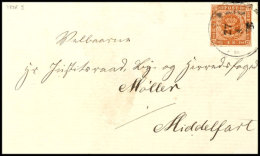 Velbaarne
Hr Justitsraad, By- og Herredsfoged
Möller
Middelfart